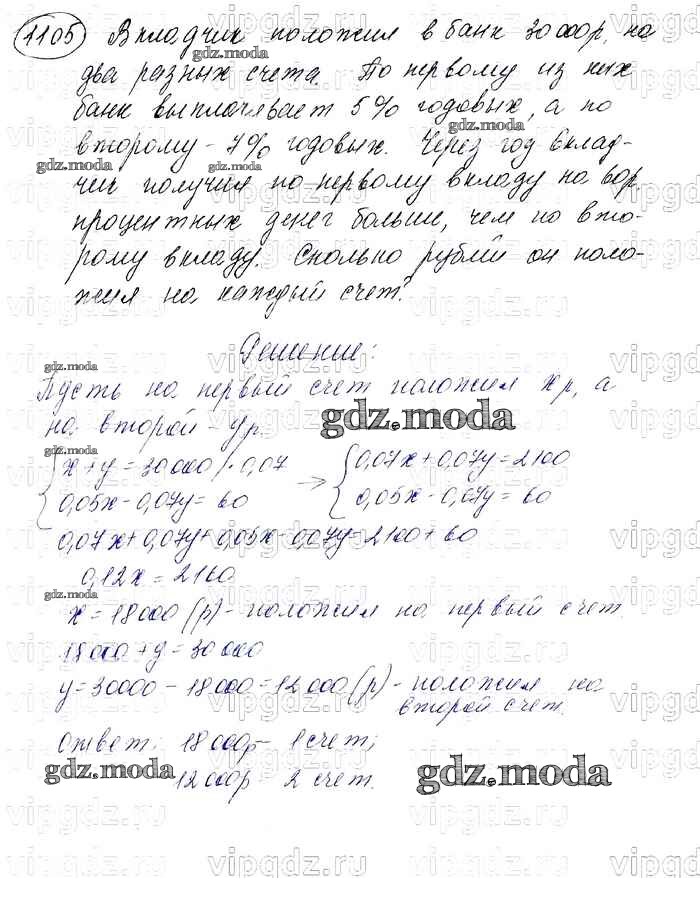 1105 Вкладчик положил в банк 30000р. на
gdz.moda
два разных счета. По первому из них
банк выплачивает 5% годовых, а по
gdz.moda
второму - 7% годовых. Через год вклад-
gdz.moda gdz.moda
чик получил по первому вкладу на 60р.
процентных денег больше, чем по вто-
рому вкладу. Сколько рублей он поло-
жил на каждый счет?
Решение:
gdz.moda
Пусть на первый счет положил x р, а
на второй - y р.
gdz.moda
x + y = 30000 | · 0,07 → 0,07x + 0,07y = 2100
0,05x - 0,07y = 60 0,05x - 0,07y = 60
0,07x + 0,07y + 0,05x - 0,07y = 2100 + 60
0,12x = 2160
gdz.moda
x = 18000 (р) - положил на первый счет.
18000 + y = 30000
y = 30000 - 18000 = 12000 (р) - положил на
второй счет.
Ответ: 18000р - 1 счет;
gdz.moda
12000р 2 счет.
gdz.moda
vipgdz.ru